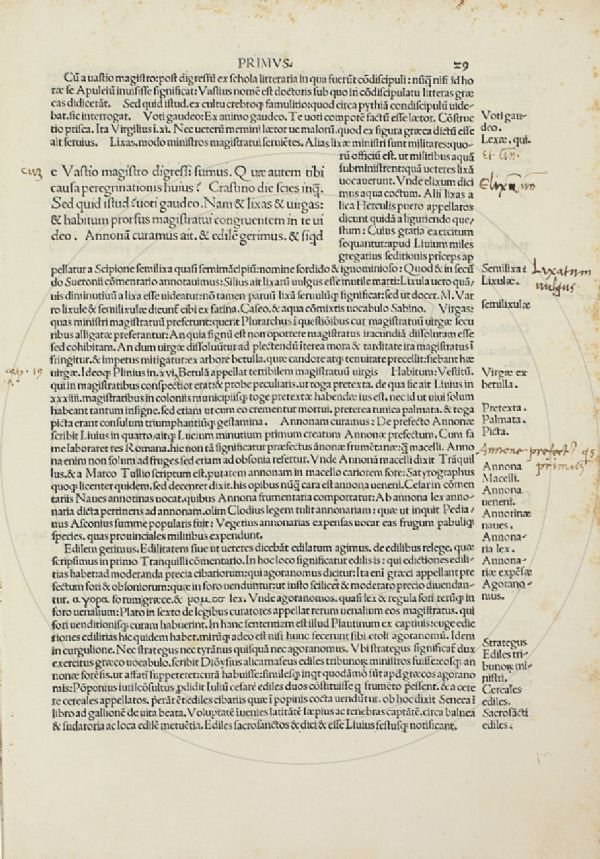 PRIMVS.
29
Cũ a uastio magistro: post digressũ ex schola litteraria in qua fuerũt cõdiscipuli: nũq̃ nisi id ho
ræ se Apuleiũ inuisisse significat: Vastius nomẽ est doctoris sub quo in cõdiscipulatu litteras græ
cas didicerãt. Sed quid istud. ex cultu crebroq; famulitio: quod circa pythiã condiscipulũ uide-
bat. sic interrogat. Voti gaudeo: Ex animo gaudeo. Te uoti compotẽ factũ esse lætor. Cõstruc
tio prisca. Ita Virgilius .i. xi. Nec ueterũ memini lætor ue malorũ. quod ex figura græca dictũ esse
ait seruius. Lixas. modo ministros magistratui seruiẽtes. Alias lixæ ministri sunt militares: quo-
rũ officiũ est. ut militibus aquã
subministrent: quã ueteres lixã
uocauerunt. Vnde elixum dici
mus aqua coctum. Alii lixas a
lica Herculis puero appellatos
dicunt quidã a liguriendo que-
stum: Cuius gratia exercitum
sequantur: apud Liuium miles
gregarius seditionis priceps ap
e Vastio magistro digressi sumus. Quæ autem tibi
causa peregrinationis huius? Crastino die scies inq̃.
Sed quid istud? uori gaudeo. Nam & lixas & uirgas:
& habitum prorsus magistratui congruentem in te ui
deo. Annonã curamus ait. & edilẽ gerimus. & siqd
pellatur a Scipione semilixa quasi semimãcipiũ: nomine sordido & ignominioso: Quod & in secũ
do Suetonii cõmentario annotauimus: Silius ait lixarũ uulgus esse inutile matti: Lixula uero quã-
uis diminutiuũ a lixa esse uideatur: nõ tamen paruũ lixã seruulũq; significat: sed ut docet. M. Var
ro lixule & semilixulæ dicunt̃ cibi ex farina. Caseo, & aqua cõmixtis uocabulo Sabino. Virgas:
quas ministri magistratuũ preferunt: querit Plutarchus ĩ questiõibus cur magistratuũ uirgæ secu
ribus alligatæ preferantur: An quia signũ est non oportere magistratus iracundiã dissolutam esse
sed cohibitam. An dum uirgæ dissoluuntur ad plectendũ iterea mora & tarditate ira magistratus ĩ
fringitur. & impetus mitigatur: ex arbore betulla. quæ candore atq; tenuitate precellit: siebant hæ
uirgæ. Ideoq; Plinius in .xvi. Betulã appellat terribilem magistratuũ uirgis Habitum: Vestitũ.
qui in magistratibus conspectior erat: & probe peculiaris. ut toga pretexta. de qua sic ait Liuius in
xxxiiii. magistratibus in coloniis municipiisq; togæ pretextæ habendæ ius est, nec id ut uiui solum
habeant tantum insigne. sed etiam ut cum eo crementur mortui. preterea tunica palmata. & toga
picta erant consulum triumphantiũq; gestamina. Annonam curamus: De prefecto Annonæ
scribit Liuius in quarto. aitq; Lucium minutium primum creatum Annonæ prefectum. Cum fa
me laboraret res Romana. hic non tã significat præfectus ãnonæ frumẽtariæ: q̃ macelli. Anno
na enim non solum ad fruges sed etiam ad obsonia refertur. Vnde Annonã macelli dixit Trãquil
lus. & a Marco Tullio scriptum est. putarem annonam in macello cariorem fore: Satyrographus
quoq; licenter quidem. sed decenter dixit. his opibus nũq̃ cara est annona ueneni. Cæsar in cõmen
tariis Naues annotinas uocat. quibus Annona frumentaria comportatur: Ab annona lex anno-
naria dicta pertinens ad annonam. olim Clodius legem tulit annonariam: quæ ut inquit Pedia-
nus Asconius summe popularis fuit: Vegetius annonarias expensas uocat eas frugum pabuliq;
species. quas prouinciales militibus expendunt.
Edilem gerimus. Edilitatem siue ut ueteres dicebãt edilatum agimus. de edilibus relege. quæ
scripsimus in primo Tranquilli cõmentario. In hoc loco significatur edilis is: qui edictiones edili-
tias habet: ad moderanda precia cibariorum: qui agoranomus dicitur: Ita eni græci appellant pre
fectum fori & obsoniorum: quæ in foro uenduntur: ut iusto scilicet & moderato precio diuendan-
tur. αγορα forum græce, & νομοσ lex. Vnde agoranomos. quasi lex & regula fori rerũq; in
foro uenalium: Plato in sexto de legibus curatores appellat rerum uenalium eos magistratus. qui
fori uenditionisq; curam habuerint. In hanc sententiam est illud Plautinum ex captiuis: euge edic
tiones edilitias hic quidem habet. mirũq; adeo est nisi hunc fecerunt sibi etoli agoranomũ. Idem
in curgulione. Nec strategus nec tyrãnus quisquã nec agoranomus. Vbi strategus significat dux
exercitus græco uocabulo. scribit Diõysius alicarnaseus ediles tribunorũ ministros fuisse: eosq; an
nonæ forẽsis. ut affati suppeteret: curã habuisse: similesq; inqt quodãmõ sũt apd græcos agorano
mis: Põponius iuriscõsultus. pdidit Iuliũ cesarẽ ediles duos cõstituisse q frumẽto pessent. & a cere
re cereales appellatos. perãt et ediles cibariis quæ ĩ popinis cocta uendũtur. ob hoc dixit Seneca ĩ
libro ad gallionẽ de uita beata. Voluptatẽ ĩuenies latitãtẽ sæpius ac tenebras captãtẽ. circa balnea
& sudatoria ac loca edilẽ metuẽtia. Ediles sacrosanctos & dici & esse Liuius festusq; notificant.
Voti gau-
deo.
Lexæ. qui.
Semilixa:
Lixulæ.
semilixulæ
Virgæ ex
betulla.
Pretexta.
Palmata.
Picta.
Annona
Macelli.
Annona
ueneni.
Annotinæ
naues.
Annona-
ria lex.
Annona-
riæ expẽsæ
Agorano-
mus.
Strategus
Ediles tri-
bunorũ mi-
nistri.
Cereales
ediles.
Sacrosãcti
ediles.
Lixatum
uulgus
primus